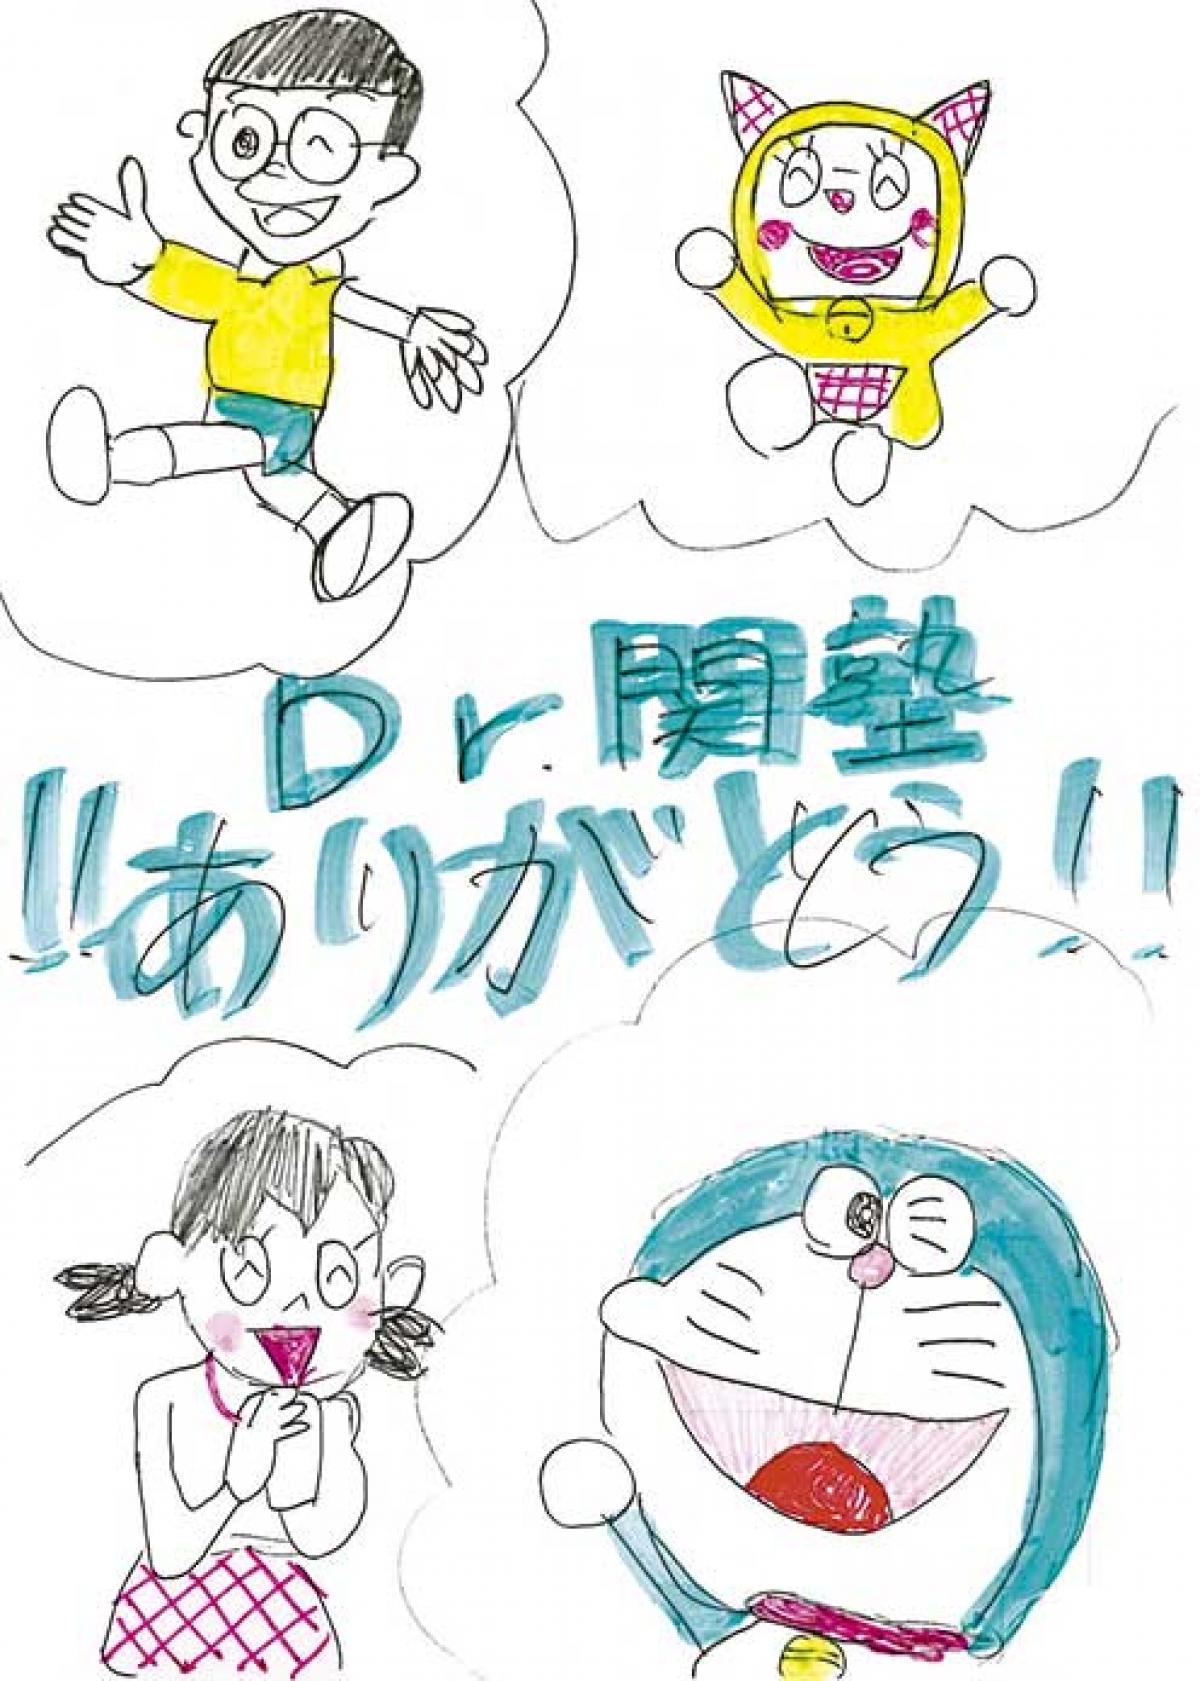 Dr.関塾
!!ありがとう!!